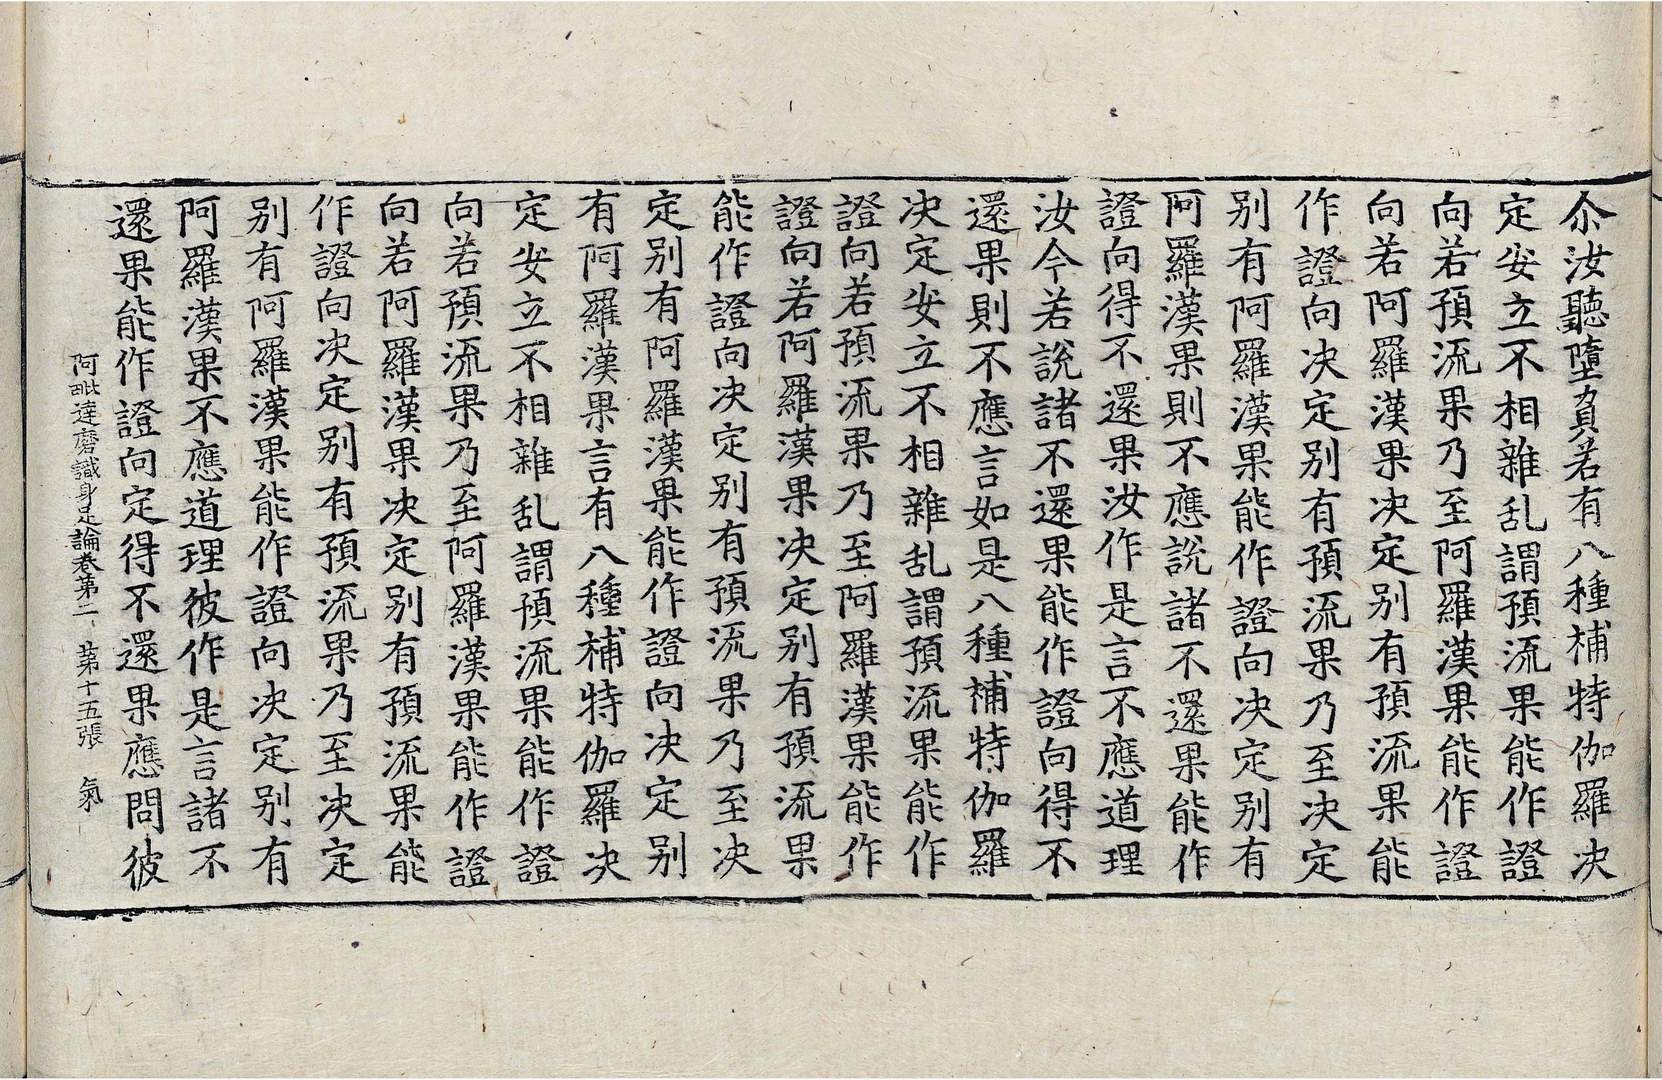 尒汝聽墮負若有八種補特伽羅决
定安立不相雜乱謂預流果能作證
向若預流果乃至阿羅漢果能作證
向若阿羅漢果决定别有預流果能
作證向决定别有預流果乃至决定
别有阿羅漢果能作證向决定别有
阿羅漢果則不應說諸不還果能作
證向得不還果汝作是言不應道理
汝今若說諸不還果能作證向得不
還果則不應言如是八種補特伽羅
决定安立不相雜乱謂預流果能作
證向若預流果乃至阿羅漢果能作
證向若阿羅漢果决定别有預流果
能作證向决定别有預流果乃至决
定别有阿羅漢果能作證向决定别
有阿羅漢果言有八種補特伽羅决
定安立不相雜乱謂預流果能作證
向若預流果乃至阿羅漢果能作證
向若阿羅漢果决定别有預流果能
作證向决定别有預流果乃至决定
别有阿羅漢果能作證向决定别有
阿羅漢果不應道理彼作是言諸不
還果能作證向定得不還果應問彼
阿毗達磨識身足論卷第二 第十五張 氣